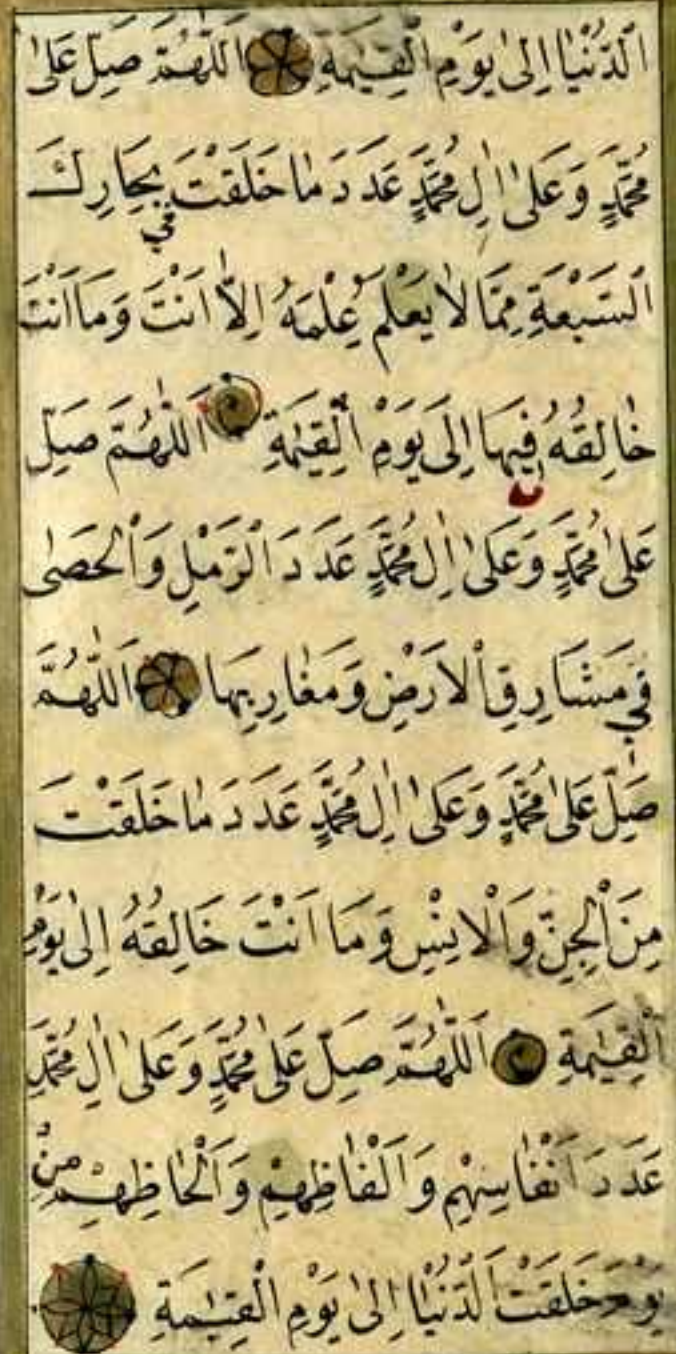 اَلدُّنْيَا اِلىٰ يَوْمِ الْقِيٰمَةِ اَللّٰهُمَّ صَلِّ عَلىٰ
مُحَمَّدٍ وَعَلىٰ اٰلِ مُحَمَّدٍ عَدَدَ مٰا خَلَقْتَ فِي بِحَارِكَ
اَلسَّبْعَةِ مِمَّا لٰا يَعْلَمُ عِلْمَهُ اِلاّٰ اَنْتَ وَمَا اَنْتَ
خٰالِقُهُ فِيهَا اِلَى يَوْمِ الْقِيٰمَةِ اَللّٰهُمَّ صَلِّ
عَلىٰ مُحَمَّدٍ وَعَلىٰ اٰلِ مُحَمَّدٍ عَدَدَ الرَّمْلِ وَالْحَصٰى
فِي مَشَارِقِ الْاَرْضِ وَمَغٰارِبِهَا اَللّٰهُمَّ
صَلِّ عَلىٰ مُحَمَّدٍ وَعَلىٰ اٰلِ مُحَمَّدٍ عَدَدَ مٰا خَلَقْتَ
مِنَ الْجِنِّ وَالْاِنْسِ وَمَا اَنْتَ خَالِقُهُ اِلىٰ يَوْمِ
الْقِيٰمَةِ اَللّٰهُمَّ صَلِّ عَلىٰ مُحَمَّدٍ وَعَلىٰ اٰلِ مُحَمَّدٍ
عَدَدَ اَنْفَاسِهِمْ وَاَلْفَاظِهِمْ وَاَلْحٰاظِهِمْ مِنْ
يَوْمَ خَلَقْتَ الدُّنْيٰا اِلىٰ يَوْمِ الْقِيٰمَةِ